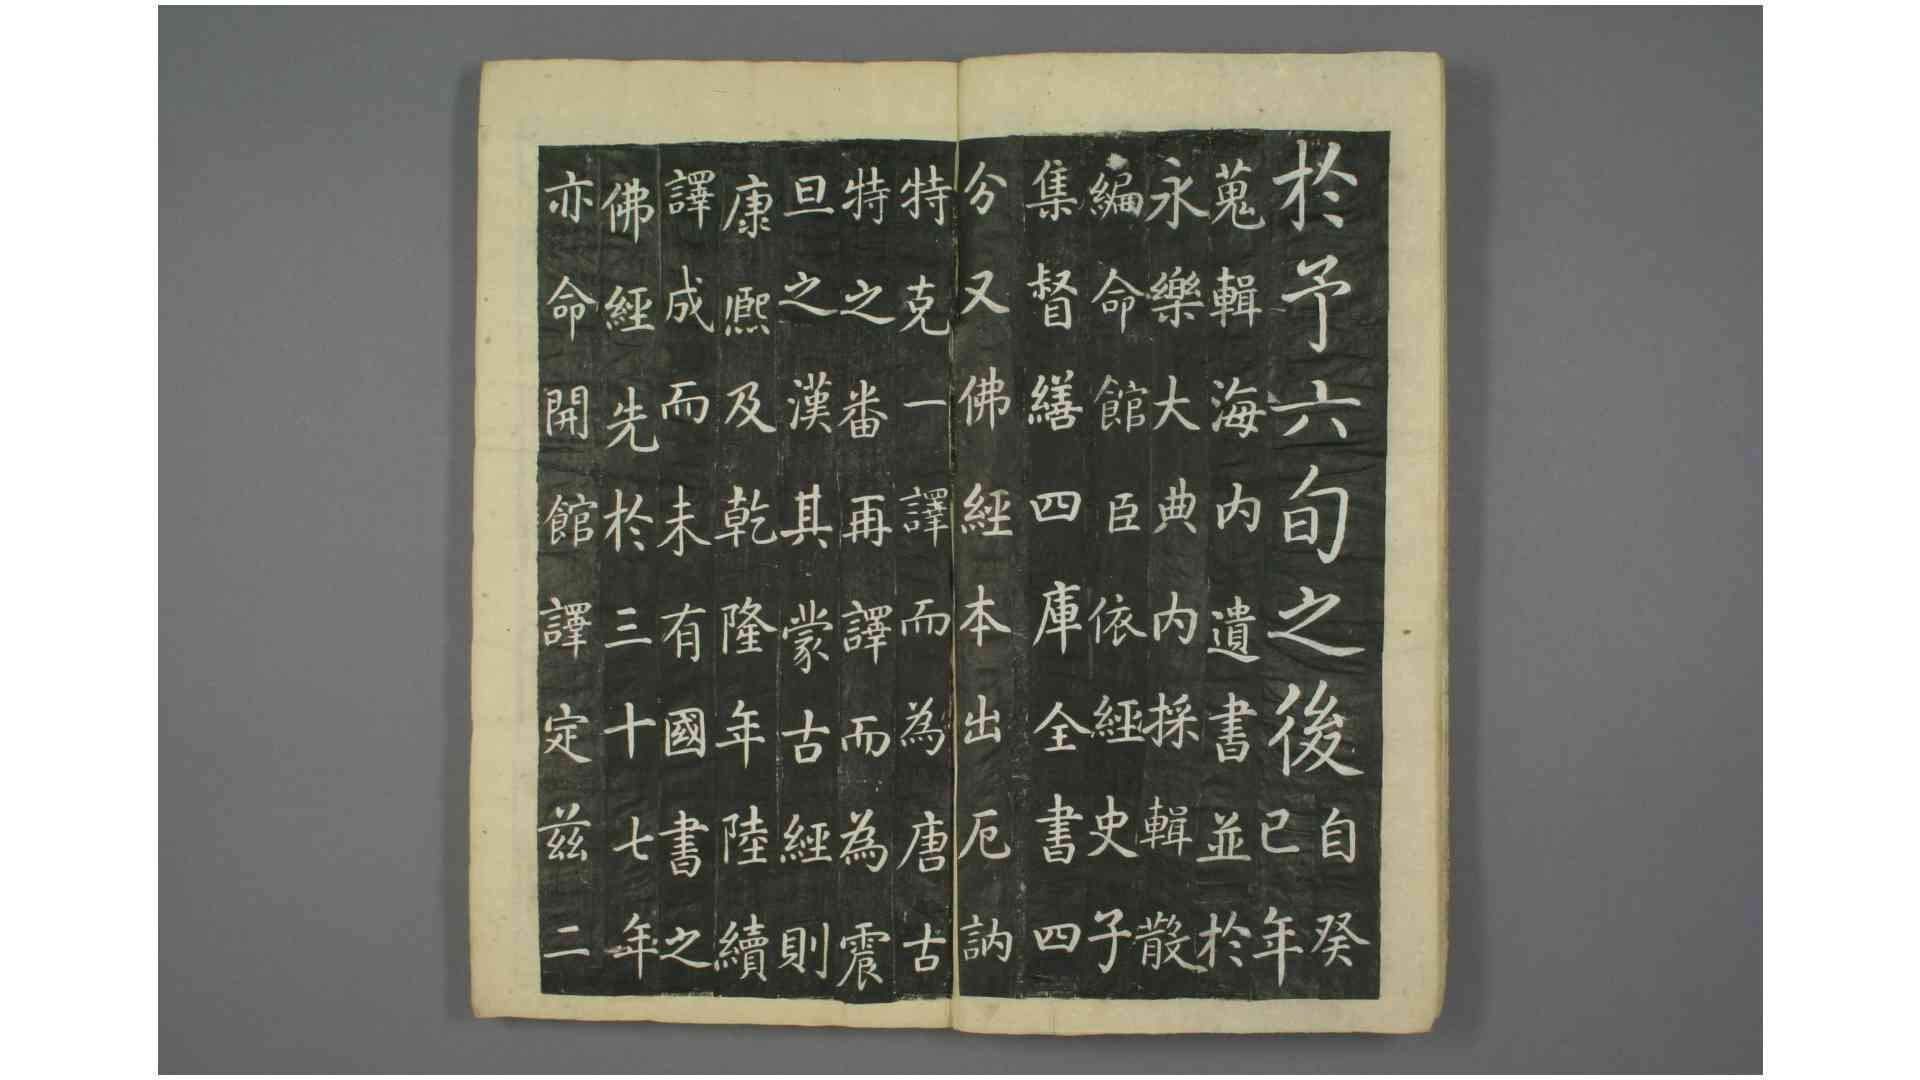 於予六旬之後
自癸
巳年
蒐輯海内遺書並於
永樂大典内採輯散
編命館臣依經史子
集督繕四庫全書四
分又佛經本出厄訥
特克一譯而為唐古
特之番再譯而為震
旦之漢其蒙古經則
康熙及乾隆年陸續
譯成而未有國書之
佛經先於三十七年
亦命開館譯定茲二